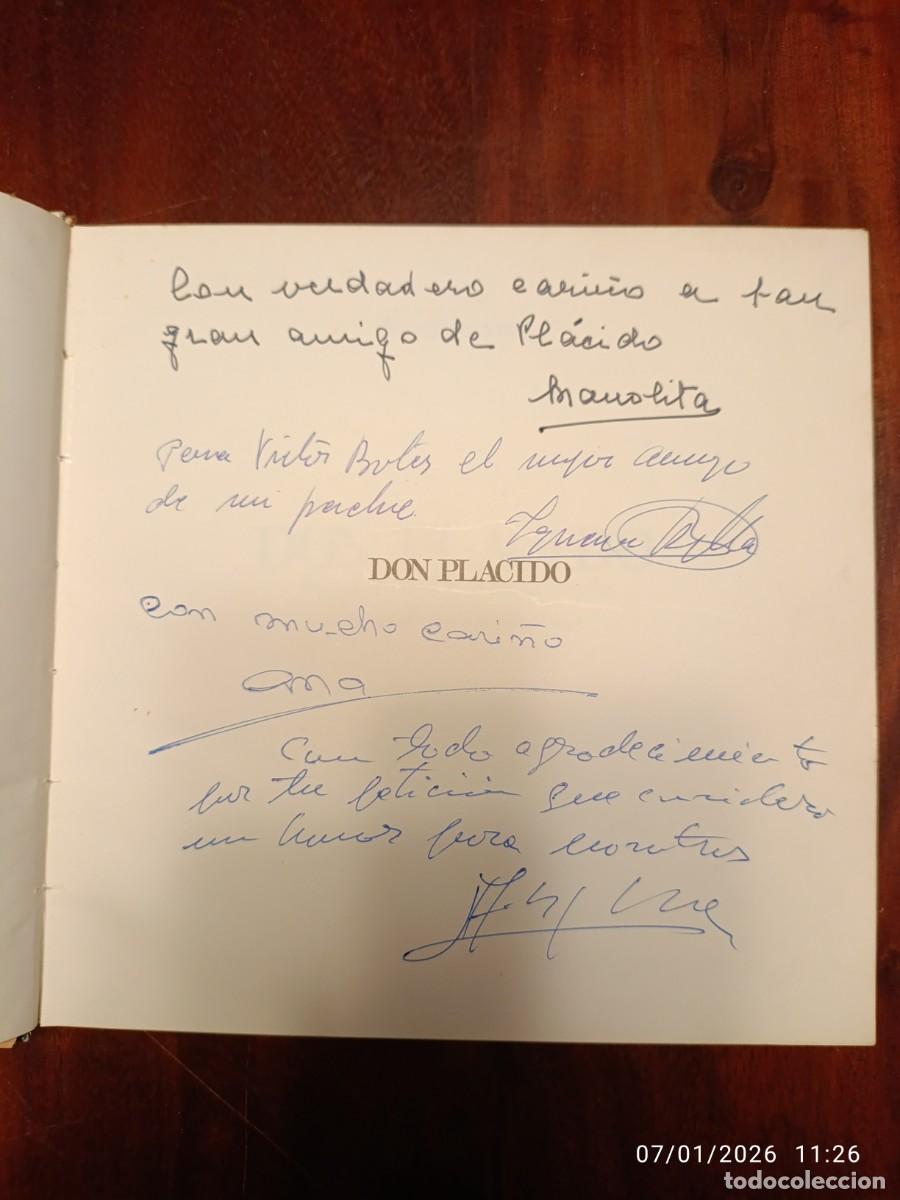 Con verdadero cariño a tan
gran amigo de Plácido
Manolita
Para Victor Botas el mejor amigo
de mi padre.
DON PLACIDO
con mucho cariño
ana
Con todo agradecimiento
por tu petición que considero
un honor para nosotros
07/01/2026 11:26
todocoleccion